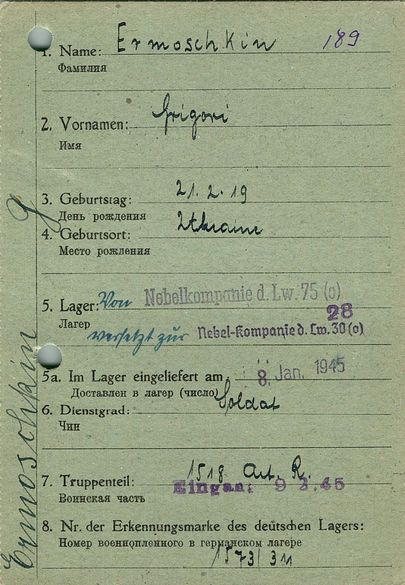 1. Name: Ermoschkin 189
Фамилия
2. Vornamen: Grigori
Имя
3. Geburtstag: 21.2.19
День рождения
4. Geburtsort: Ukraine
Место рождения
5. Lager: Von Nebelkompanie d. Lw. 75 (o)
Лагер
28
versetzt zur Nebel-Kompanie d. Lw. 30 (o)
5a. Im Lager eingeliefert am 8. Jan. 1945
Доставлен в лагер (число)
6. Dienstgrad: Soldat
Чин
7. Truppenteil: 1518 Art. R.
Воинская часть Eingan. 9 2.45
8. Nr. der Erkennungsmarke des deutschen Lagers:
Номер военнопленного в германском лагере
1573/311
Ermoschkin g